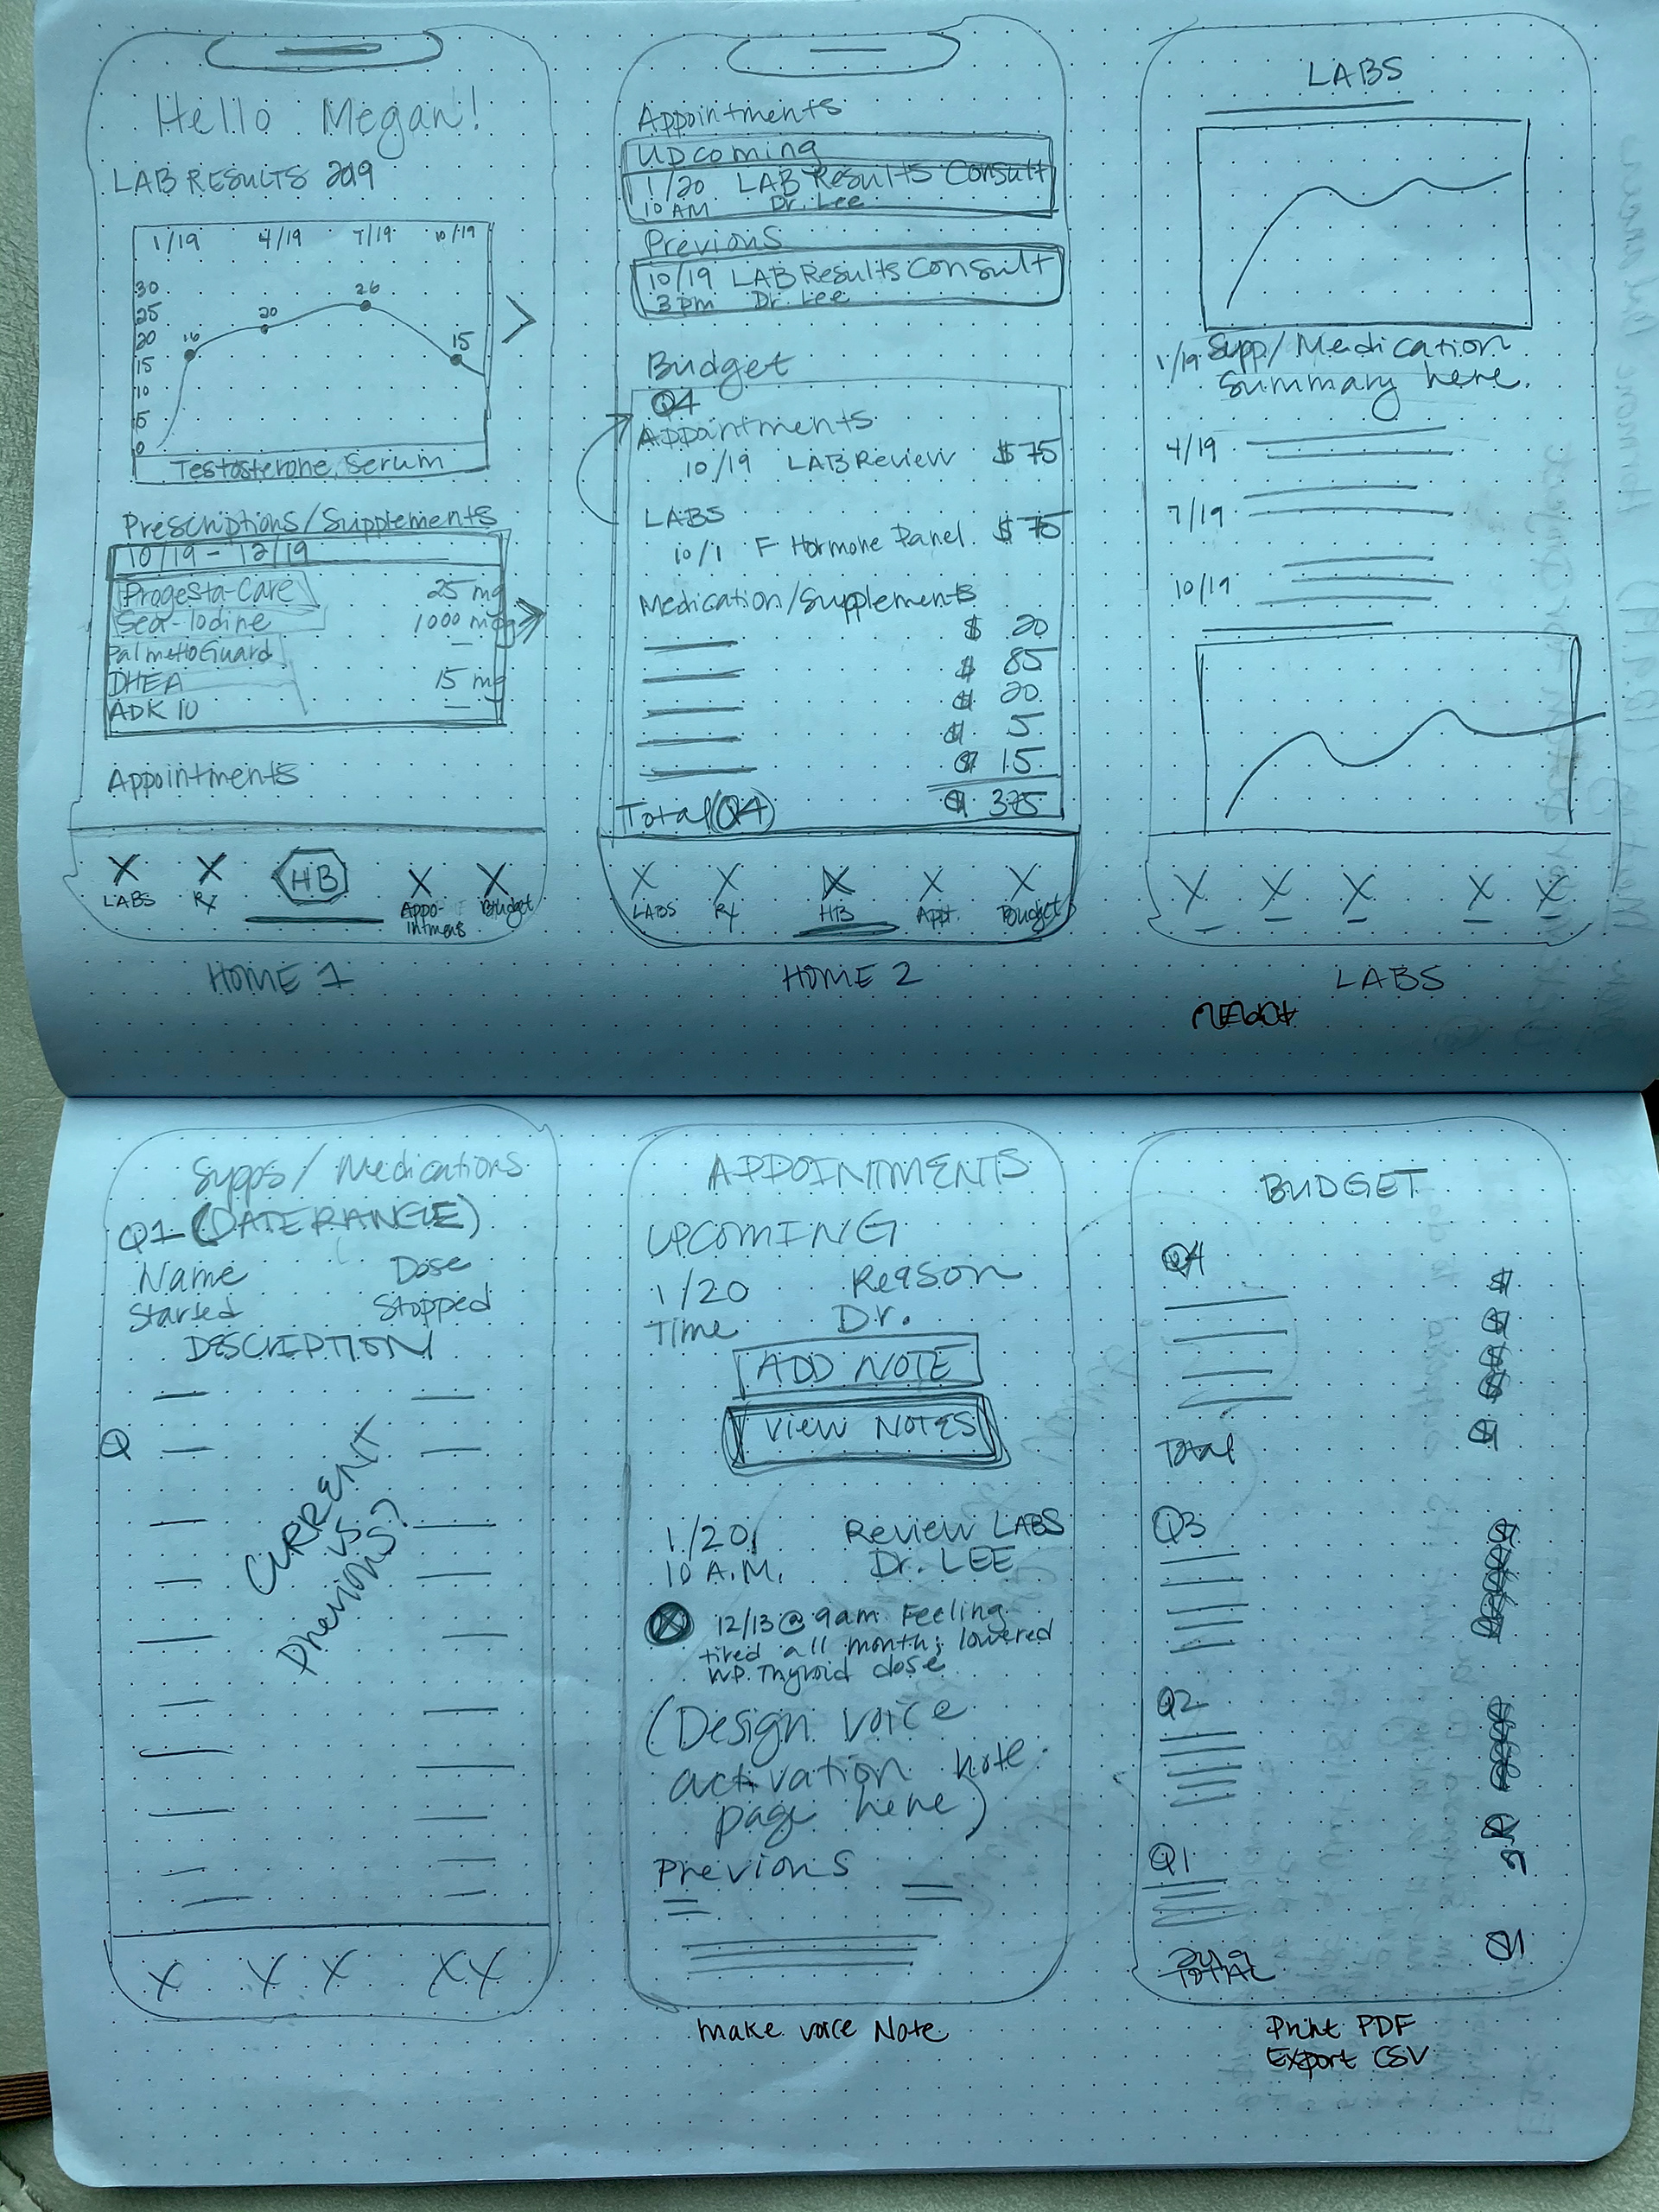 Hello Megan!
LAB RESULTS 2019
1/19 4/19 7/19 10/19
30
25
20
15
10
5
0
16
20
26
15
Testosterone, Serum
Prescriptions/Supplements
10/19 - 12/19
Progesta-Care 25 mg
Sea-Iodine 1000 mcg
PalmettoGuard —
DHEA 15 mg
ADK 10 —
Appointments
X X HB X X
LABS Rx Appo-intments Budget
HOME 1
Appointments
Upcoming
1/20 LAB Results Consult
10 AM Dr. Lee
Previous
10/19 LAB Results Consult
3 pm Dr. Lee
Budget
Q4
Appointments
10/19 LAB Review $75
LABS
10/1 F Hormone Panel $75
Medication/Supplements
$ 20
$ 85
$ 20
$ 5
$ 15
Total (Q4) $ 375
X X X X X
LABS Rx HB Appt. Budget
HOME 2
LABS
1/19 Supp/Medication
Summary here.
4/19
7/19
10/19
X X X X X
LABS
Supps/Medications
Q1 (DATE RANGE)
Name Dose
Started Stopped
DESCRIPTION
Q
CURRENT
vs
Previous?
X X X X X
APPOINTMENTS
UPCOMING
1/20 Reason
Time Dr.
ADD NOTE
VIEW NOTES
1/20 Review LABS
10 A.M. Dr. LEE
X 12/13 @ 9am Feeling
tired all month; lowered
W.P. Thyroid dose
(Design voice
activation note
page here)
Previous
make voice Note
BUDGET
Q4
$
$
$
$
Total
Q3
Q2
Q1
2019
TOTAL
Print PDF
Export CSV